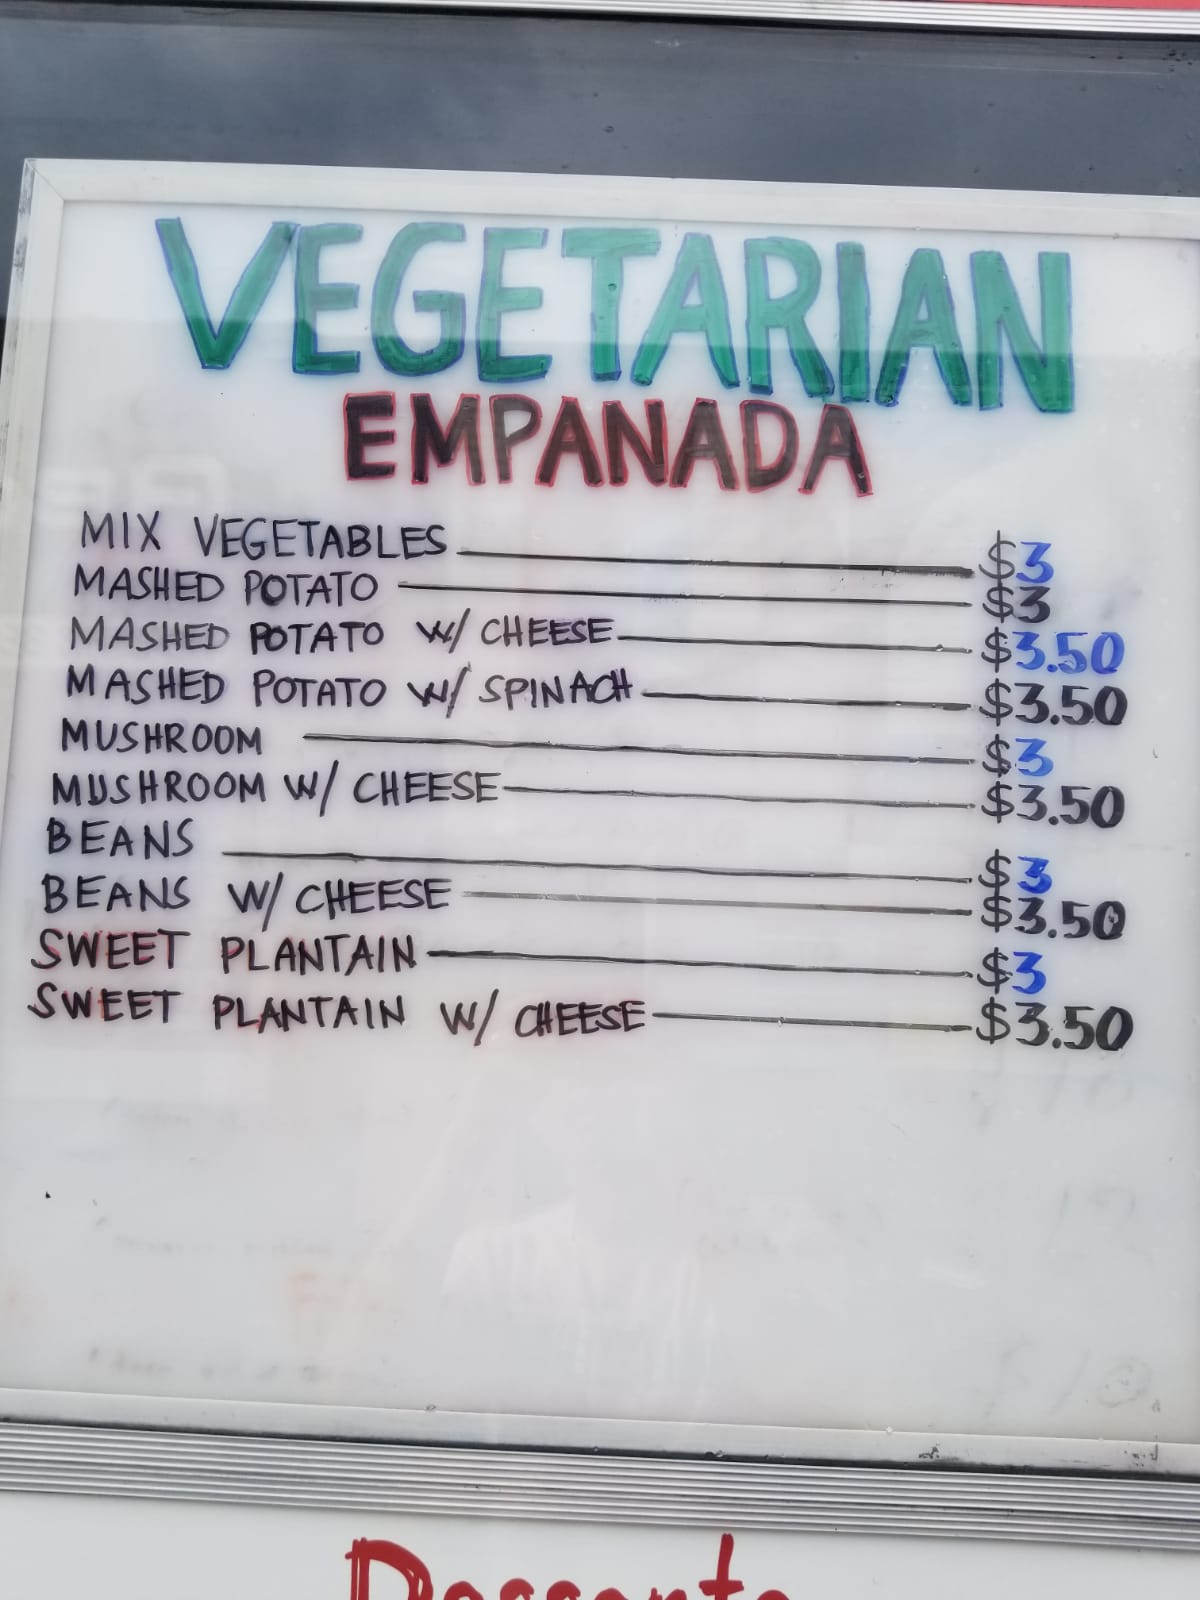 VEGETARIAN
EMPANADA
MIX VEGETABLES $3
MASHED POTATO $3
MASHED POTATO W/ CHEESE $3.50
MASHED POTATO W/ SPINACH $3.50
MUSHROOM $3
MUSHROOM W/ CHEESE $3.50
BEANS $3
BEANS W/ CHEESE $3.50
SWEET PLANTAIN $3
SWEET PLANTAIN W/ CHEESE $3.50
Desserts